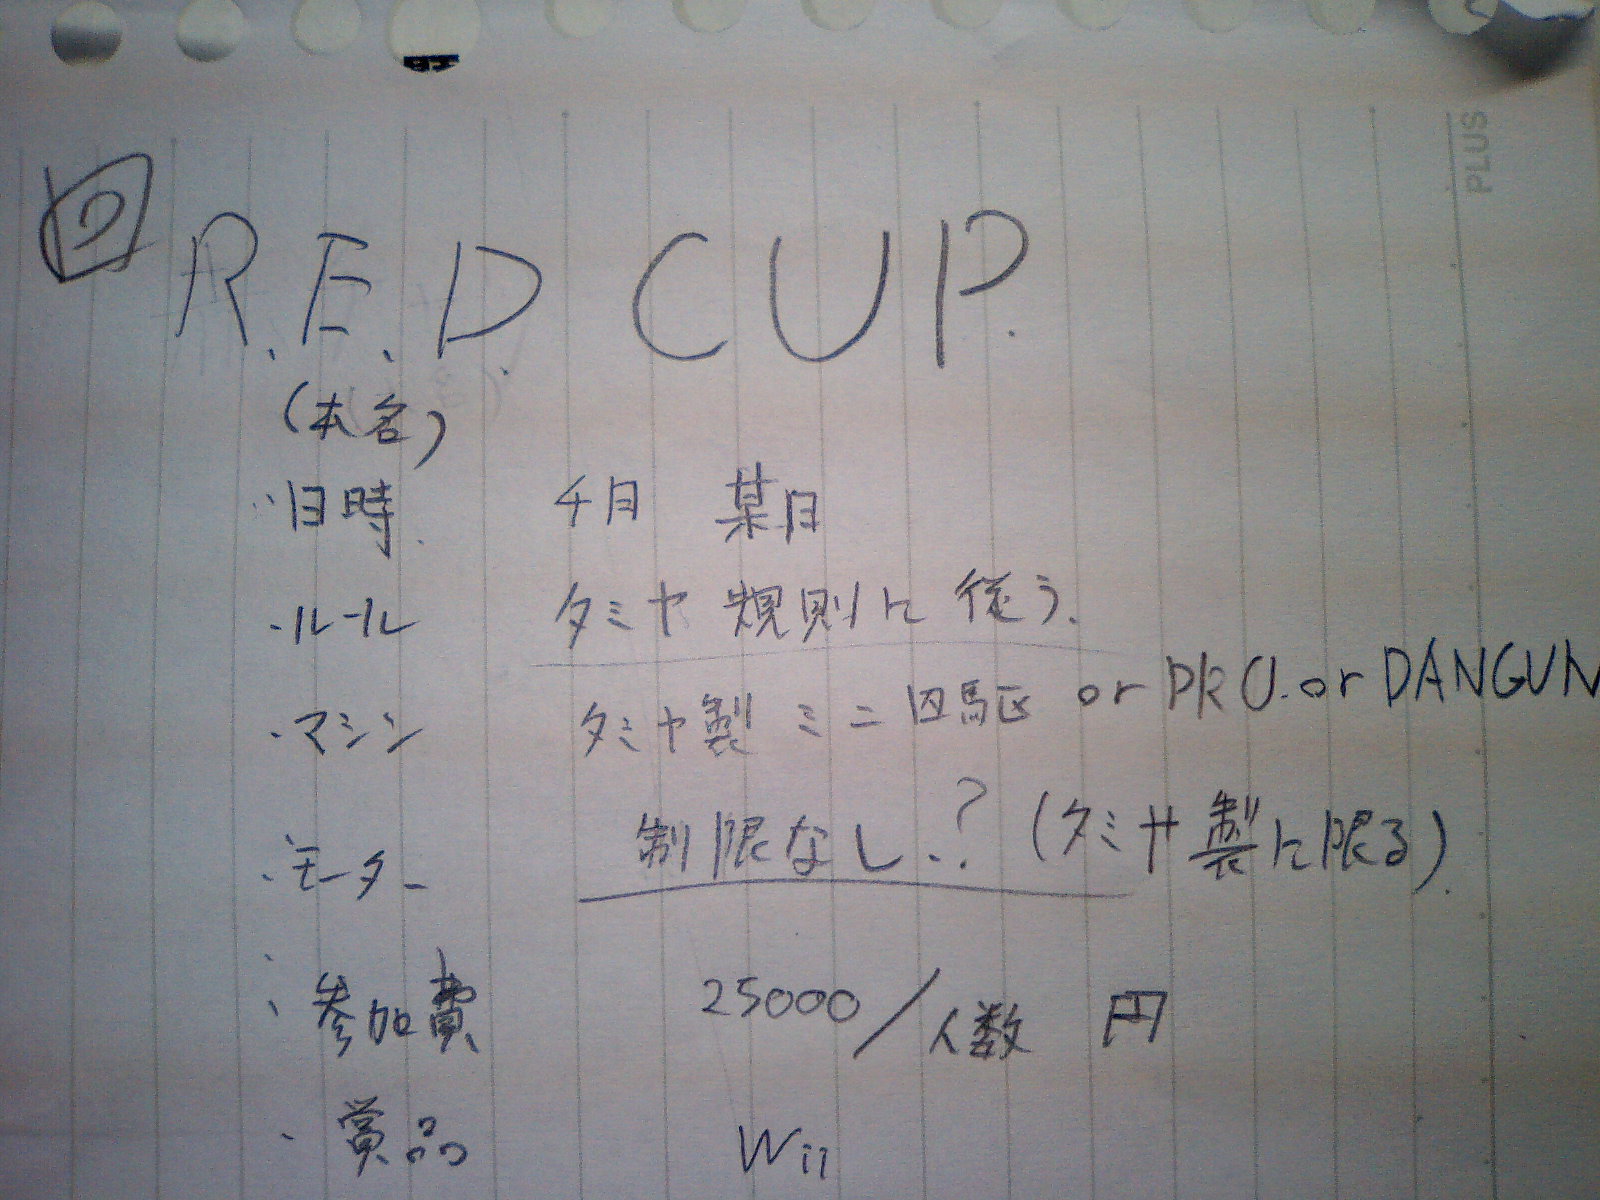 R.E.D. CUP.
(本名)
・日時 4月 某日
・ルール タミヤ規則に従う.
・マシン タミヤ製ミニ四駆 or PRO. or DANGUN
・モーター 制限なし.? (タミヤ製に限る).
・参加費 25000/人数 円
・賞品 Wii
PLUS